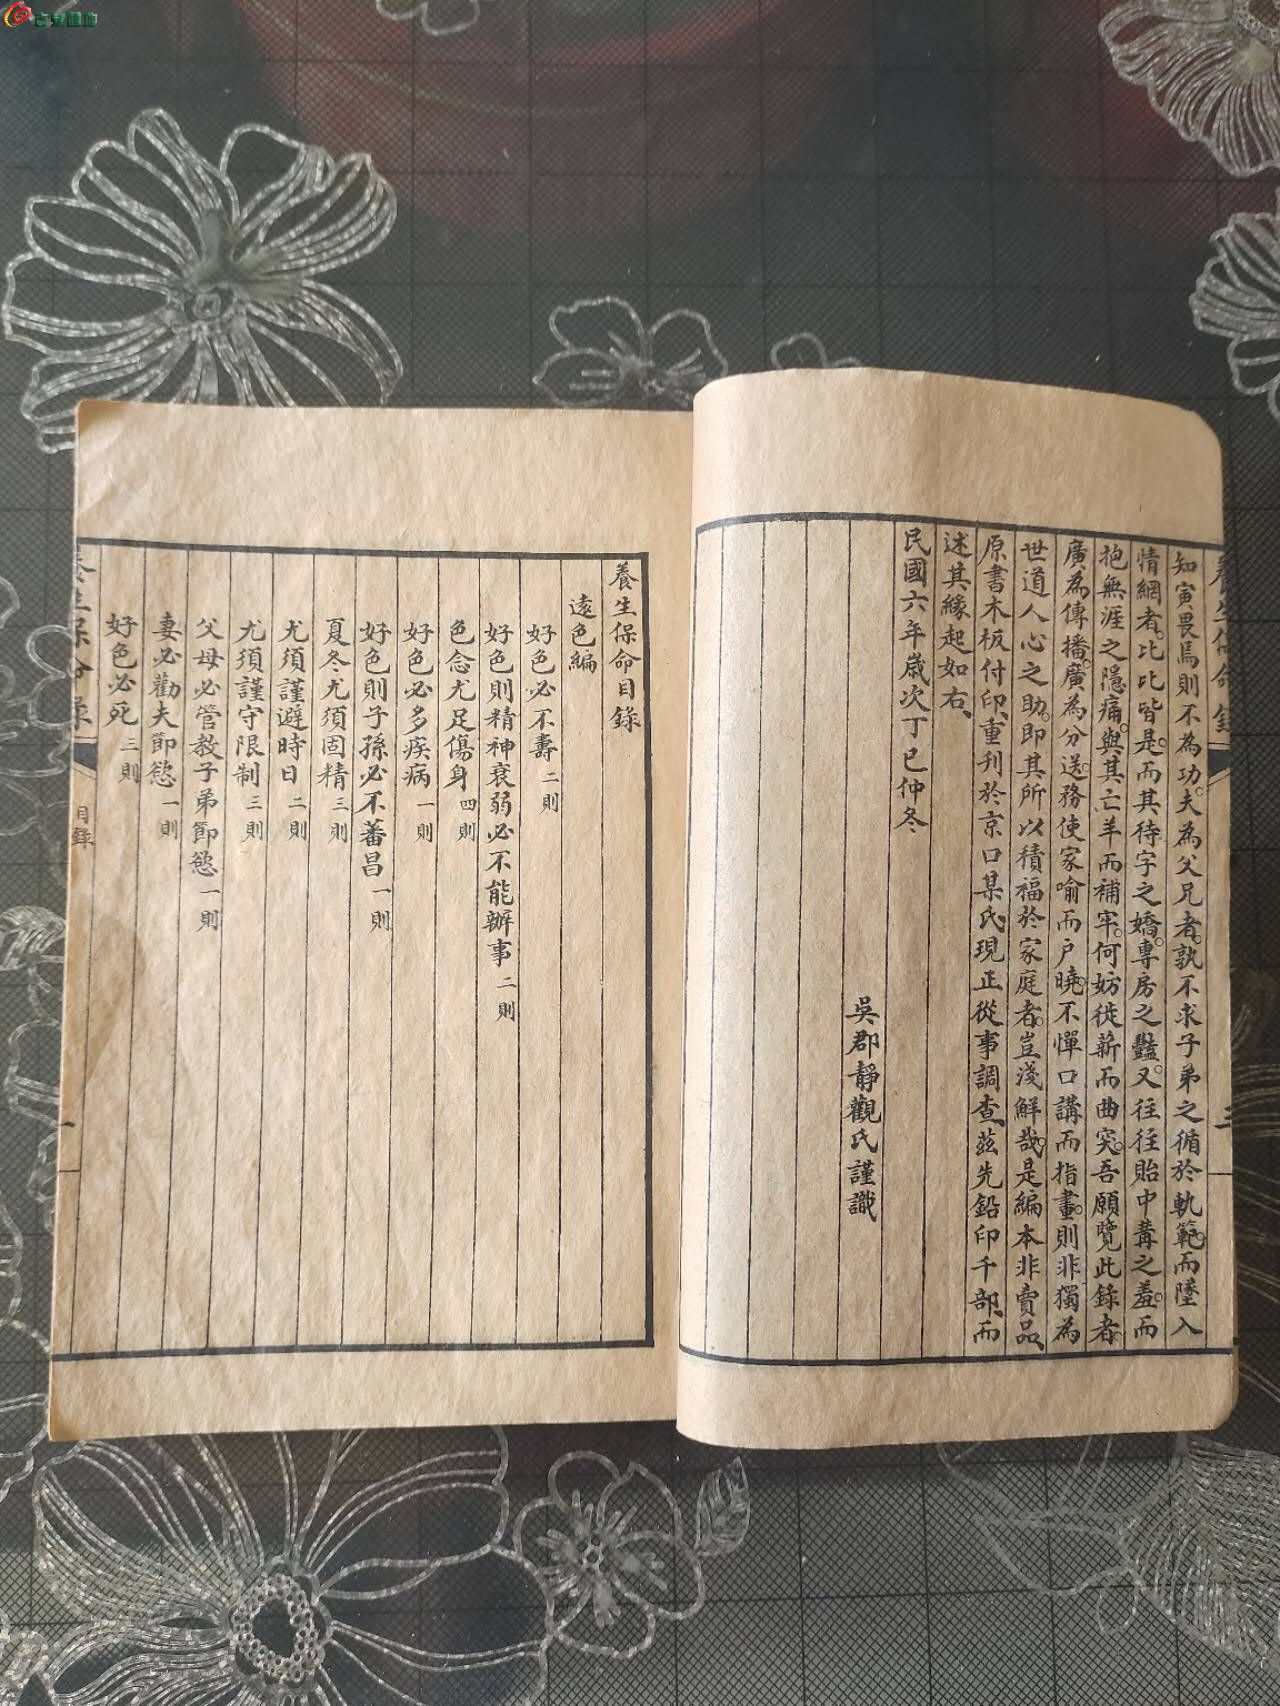 知寅畏焉則不為功夫為父兄者孰不求子弟之循於軌範而墜入
情網者比比皆是而其待字之嬌專房之豔又往往貽中冓之羞而
抱無涯之隱痛與其亡羊而補牢何妨徙薪而曲突吾願覽此錄者
廣為傳播廣為分送務使家喻而戶曉不憚口講而指畫則非獨為
世道人心之助即其所以積福於家庭者豈淺鮮哉是編本非賣品、
原書木板付印、重刊於京口某氏、現正從事調查、茲先鉛印千部、而
述其緣起如右、
民國六年歲次丁巳仲冬
吳郡靜觀氏謹識
養生保命目錄
遠色編
好色必不壽 二則
好色則精神衰弱必不能辦事 二則
色念尤足傷身 四則
好色必多疾病 一則
好色則子孫必不蕃昌 一則
夏冬尤須固精 三則
尤須謹避時日 二則
尤須謹守限制 三則
父母必管教子弟節慾 一則
妻必勸夫節慾 一則
好色必死 三則
養生保命錄
目錄
一
古泉園地